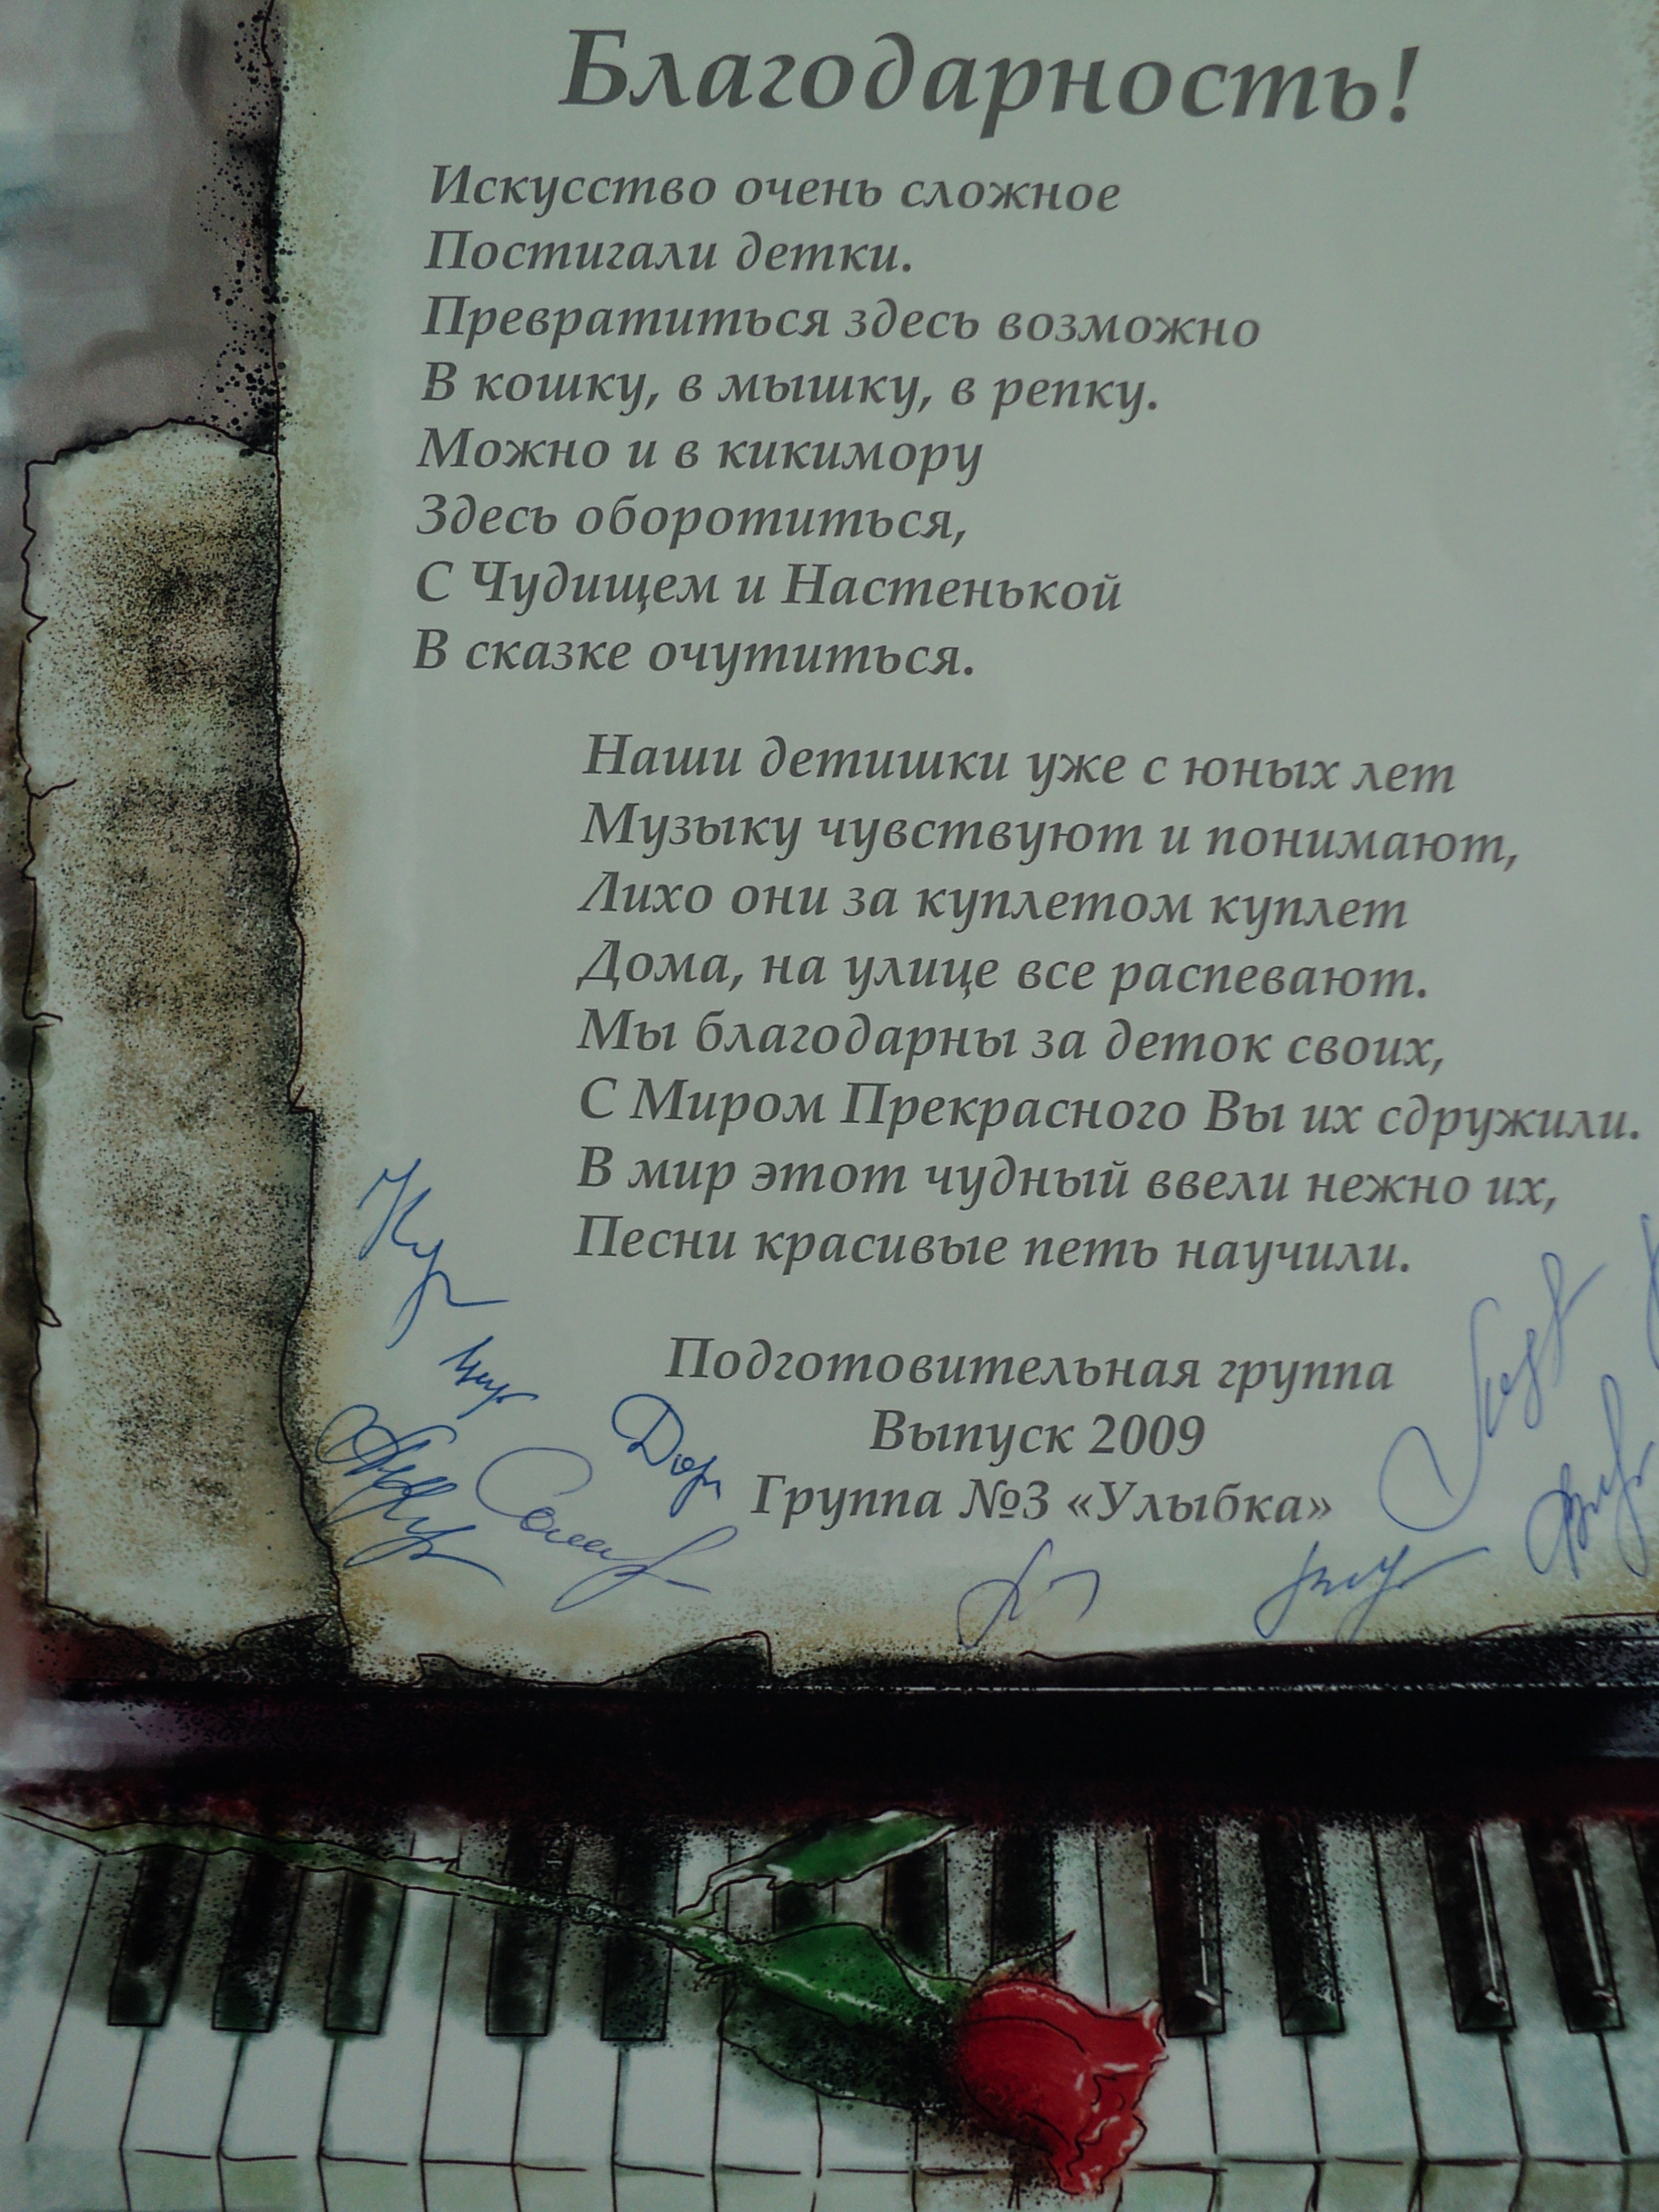 Благодарность!
Искусство очень сложное
Постигали детки.
Превратиться здесь возможно
В кошку, в мышку, в репку.
Можно и в кикимору
Здесь оборотиться,
С Чудищем и Настенькой
В сказке очутиться.
Наши детишки уже с юных лет
Музыку чувствуют и понимают,
Лихо они за куплетом куплет
Дома, на улице все распевают.
Мы благодарны за деток своих,
С Миром Прекрасного Вы их сдружили.
В мир этот чудный ввели нежно их,
Песни красивые петь научили.
Подготовительная группа
Выпуск 2009
Группа №3 «Улыбка»